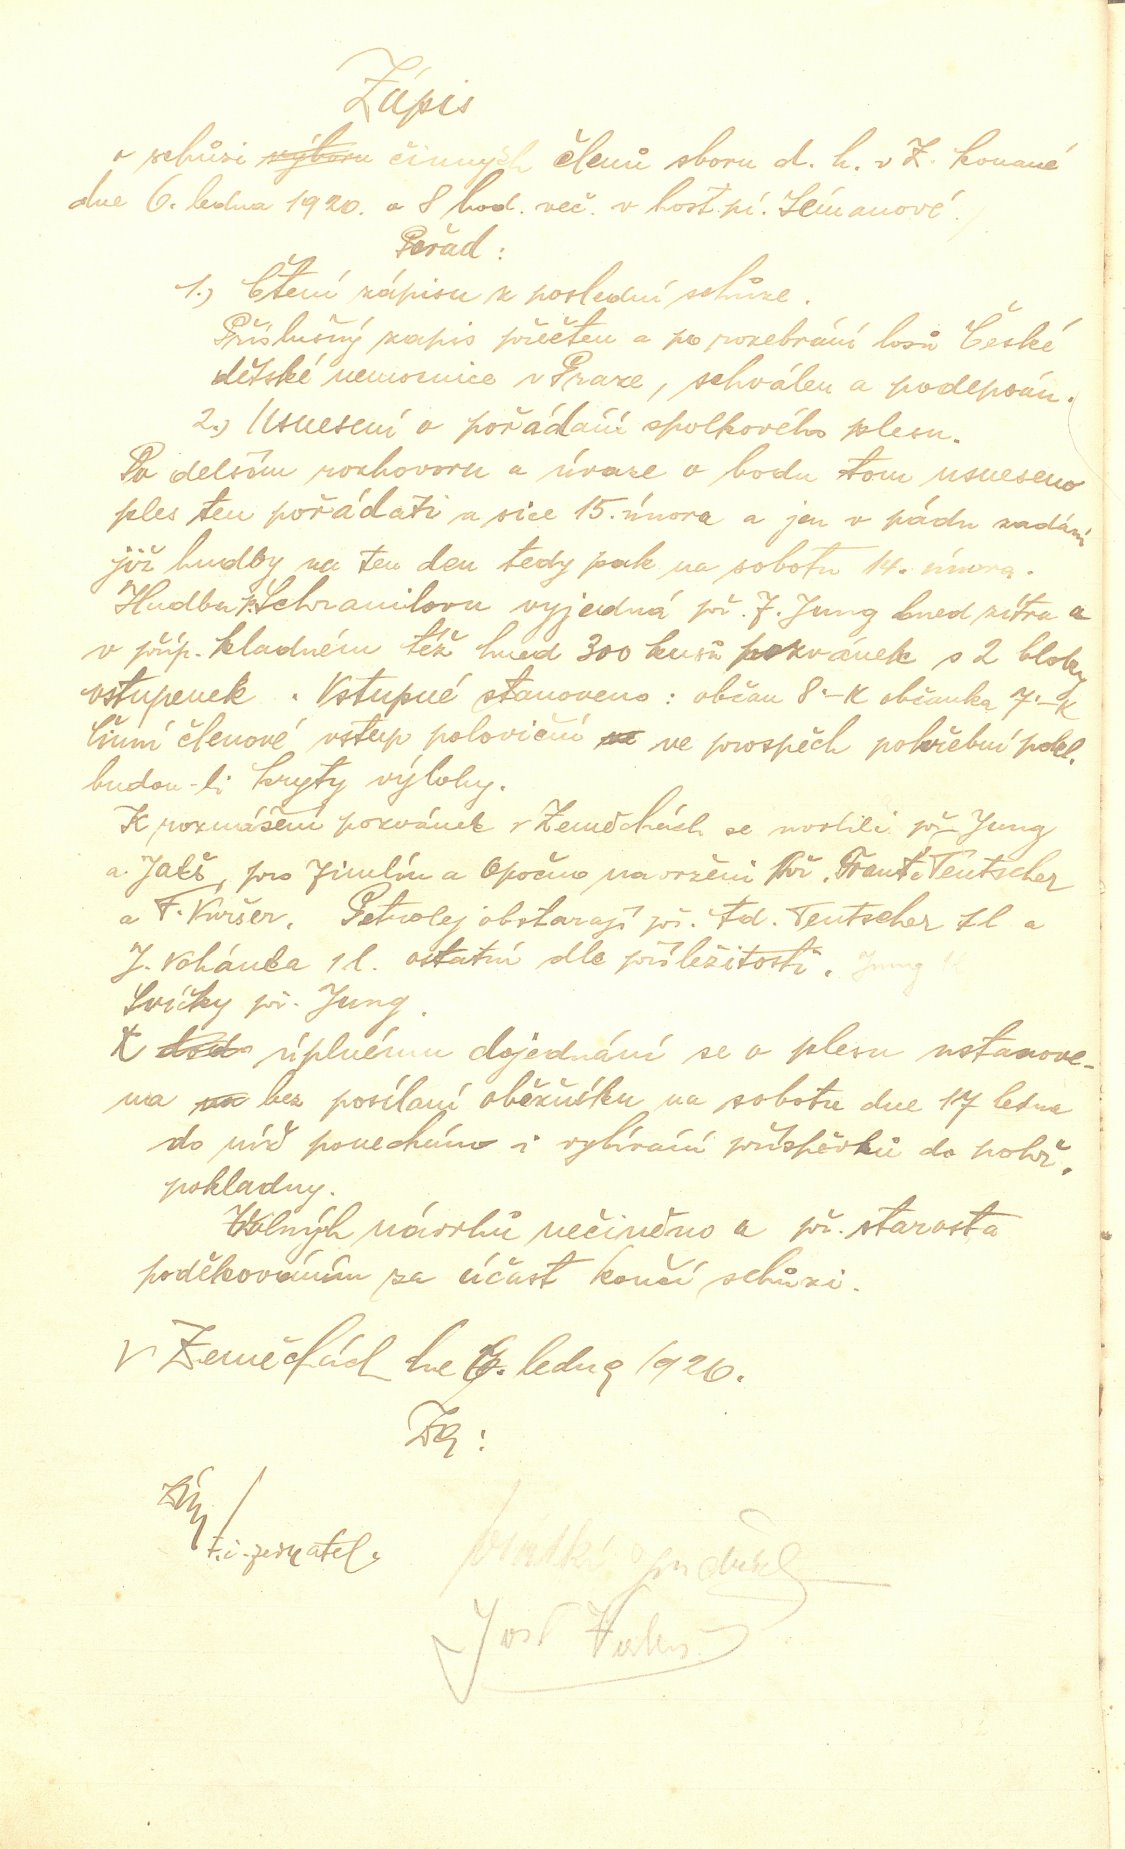 Zápis
o schůzi výboru činných členů sboru d. h. v Z. konané
dne 6. ledna 1920. o 8 hod. več. v host. pí. Zémanové.
Pořad:
1.) Čtení zápisu z poslední schůze.
Příslušný zapis přečten a po rozebrání losů České
dětské nemocnice v Praze, schválen a podepsán.
2.) Usnesení o pořádání spolkového plesu.
Po delším rozhovoru a úvaze o bodu tom usneseno
ples ten pořádati a sice 15. února a jen v pádu zadání
již hudby na ten den tedy pak na sobotu 14. února.
Hudbu p. Schramilovu vyjedná př. J. Jung hned zítra a
v příp. kladném též hned 300 kusů pozvánek s 2 bloky
vstupenek. Vstupné stanoveno: občan 8·–K občanka 7·–K
činní členové vstup poloviční ve prospěch pohřební pokl.
budou-li kryty výlohy.
K roznášení pozvánek v Zeměchách se uvolili př. Jung
a Jakš, pro Jimlín a Opočno navrženi Př. Frant. Teutscher
a F. Kuršer. Petrolej obstarají př. Fd. Teutscher 1 l a
J. Kohánka 1 l. ostatní dle příležitosti. Jung
Svíčky př. Jung.
K úplnému dojednání se o plesu ustanove-
na bez posílání oběžníku na sobotu dne 17 ledna
do níž ponecháno i vybírání příspěvků do pohř.
pokladny.
Volných návrhů nečiněno a př. starosta
poděkováním za účast končí schůzi.
V Zeměchách dne 6. ledna 1920.
Za:
t. č. jednatel.
Josef